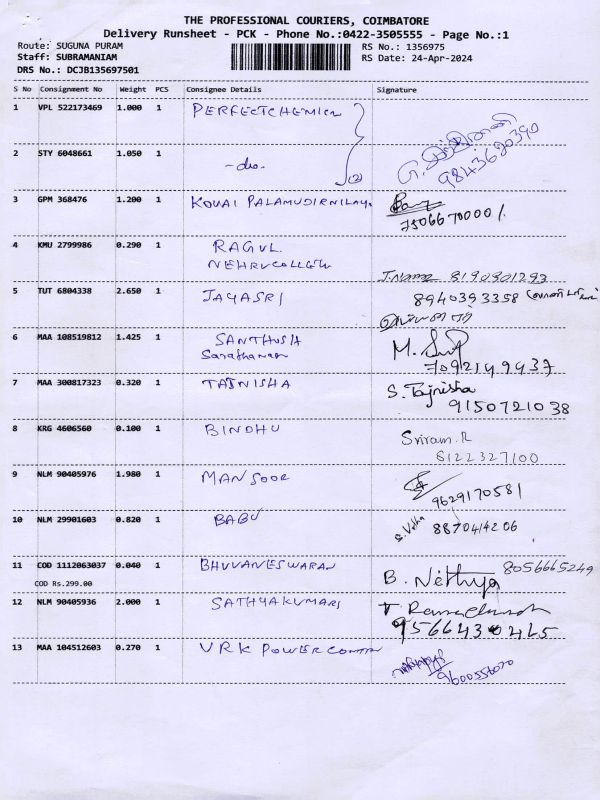 THE PROFESSIONAL COURIERS, COIMBATORE
Delivery Runsheet - PCK - Phone No.:0422-3505555 - Page No.:1
Route: SUGUNA PURAM RS No.: 1356975
Staff: SUBRAMANIAM RS Date: 24-Apr-2024
DRS No.: DCJB135697501
S No Consignment No Weight PCS Consignee Details Signature
1 VPL 522173469 1.000 1 PERFECTCHEMICA
2 STY 6048661 1.050 1 -do- (2)
9843620390
3 GPM 368476 1.200 1 KOVAI PALAMUDIRNILAYA
7506670000
4 KMU 2799986 0.290 1 RAGUL
NEHRUCOLLEGE
8190901293
5 TUT 6804338 2.650 1 JAYASRI 8940393358
6 MAA 108519812 1.425 1 SANTHOSH
Sarathanan
7092149937
7 MAA 300817323 0.320 1 TAJNISHA S. Tajnisha
9150721038
8 KRG 4606560 0.100 1 BINDHU Sriram.R
8122327100
9 NLM 90405976 1.980 1 MANSOOR
9629170581
10 NLM 29901603 0.820 1 BABU 8870414206
11 COD 1112063037 0.040 1 BHUVANESWARAN B. Nethya 8056665249
COD Rs.299.00
12 NLM 90405936 2.000 1 SATHYAKUMARI
9566430415
13 MAA 104512603 0.270 1 VRK POWERCONTR
9600556020